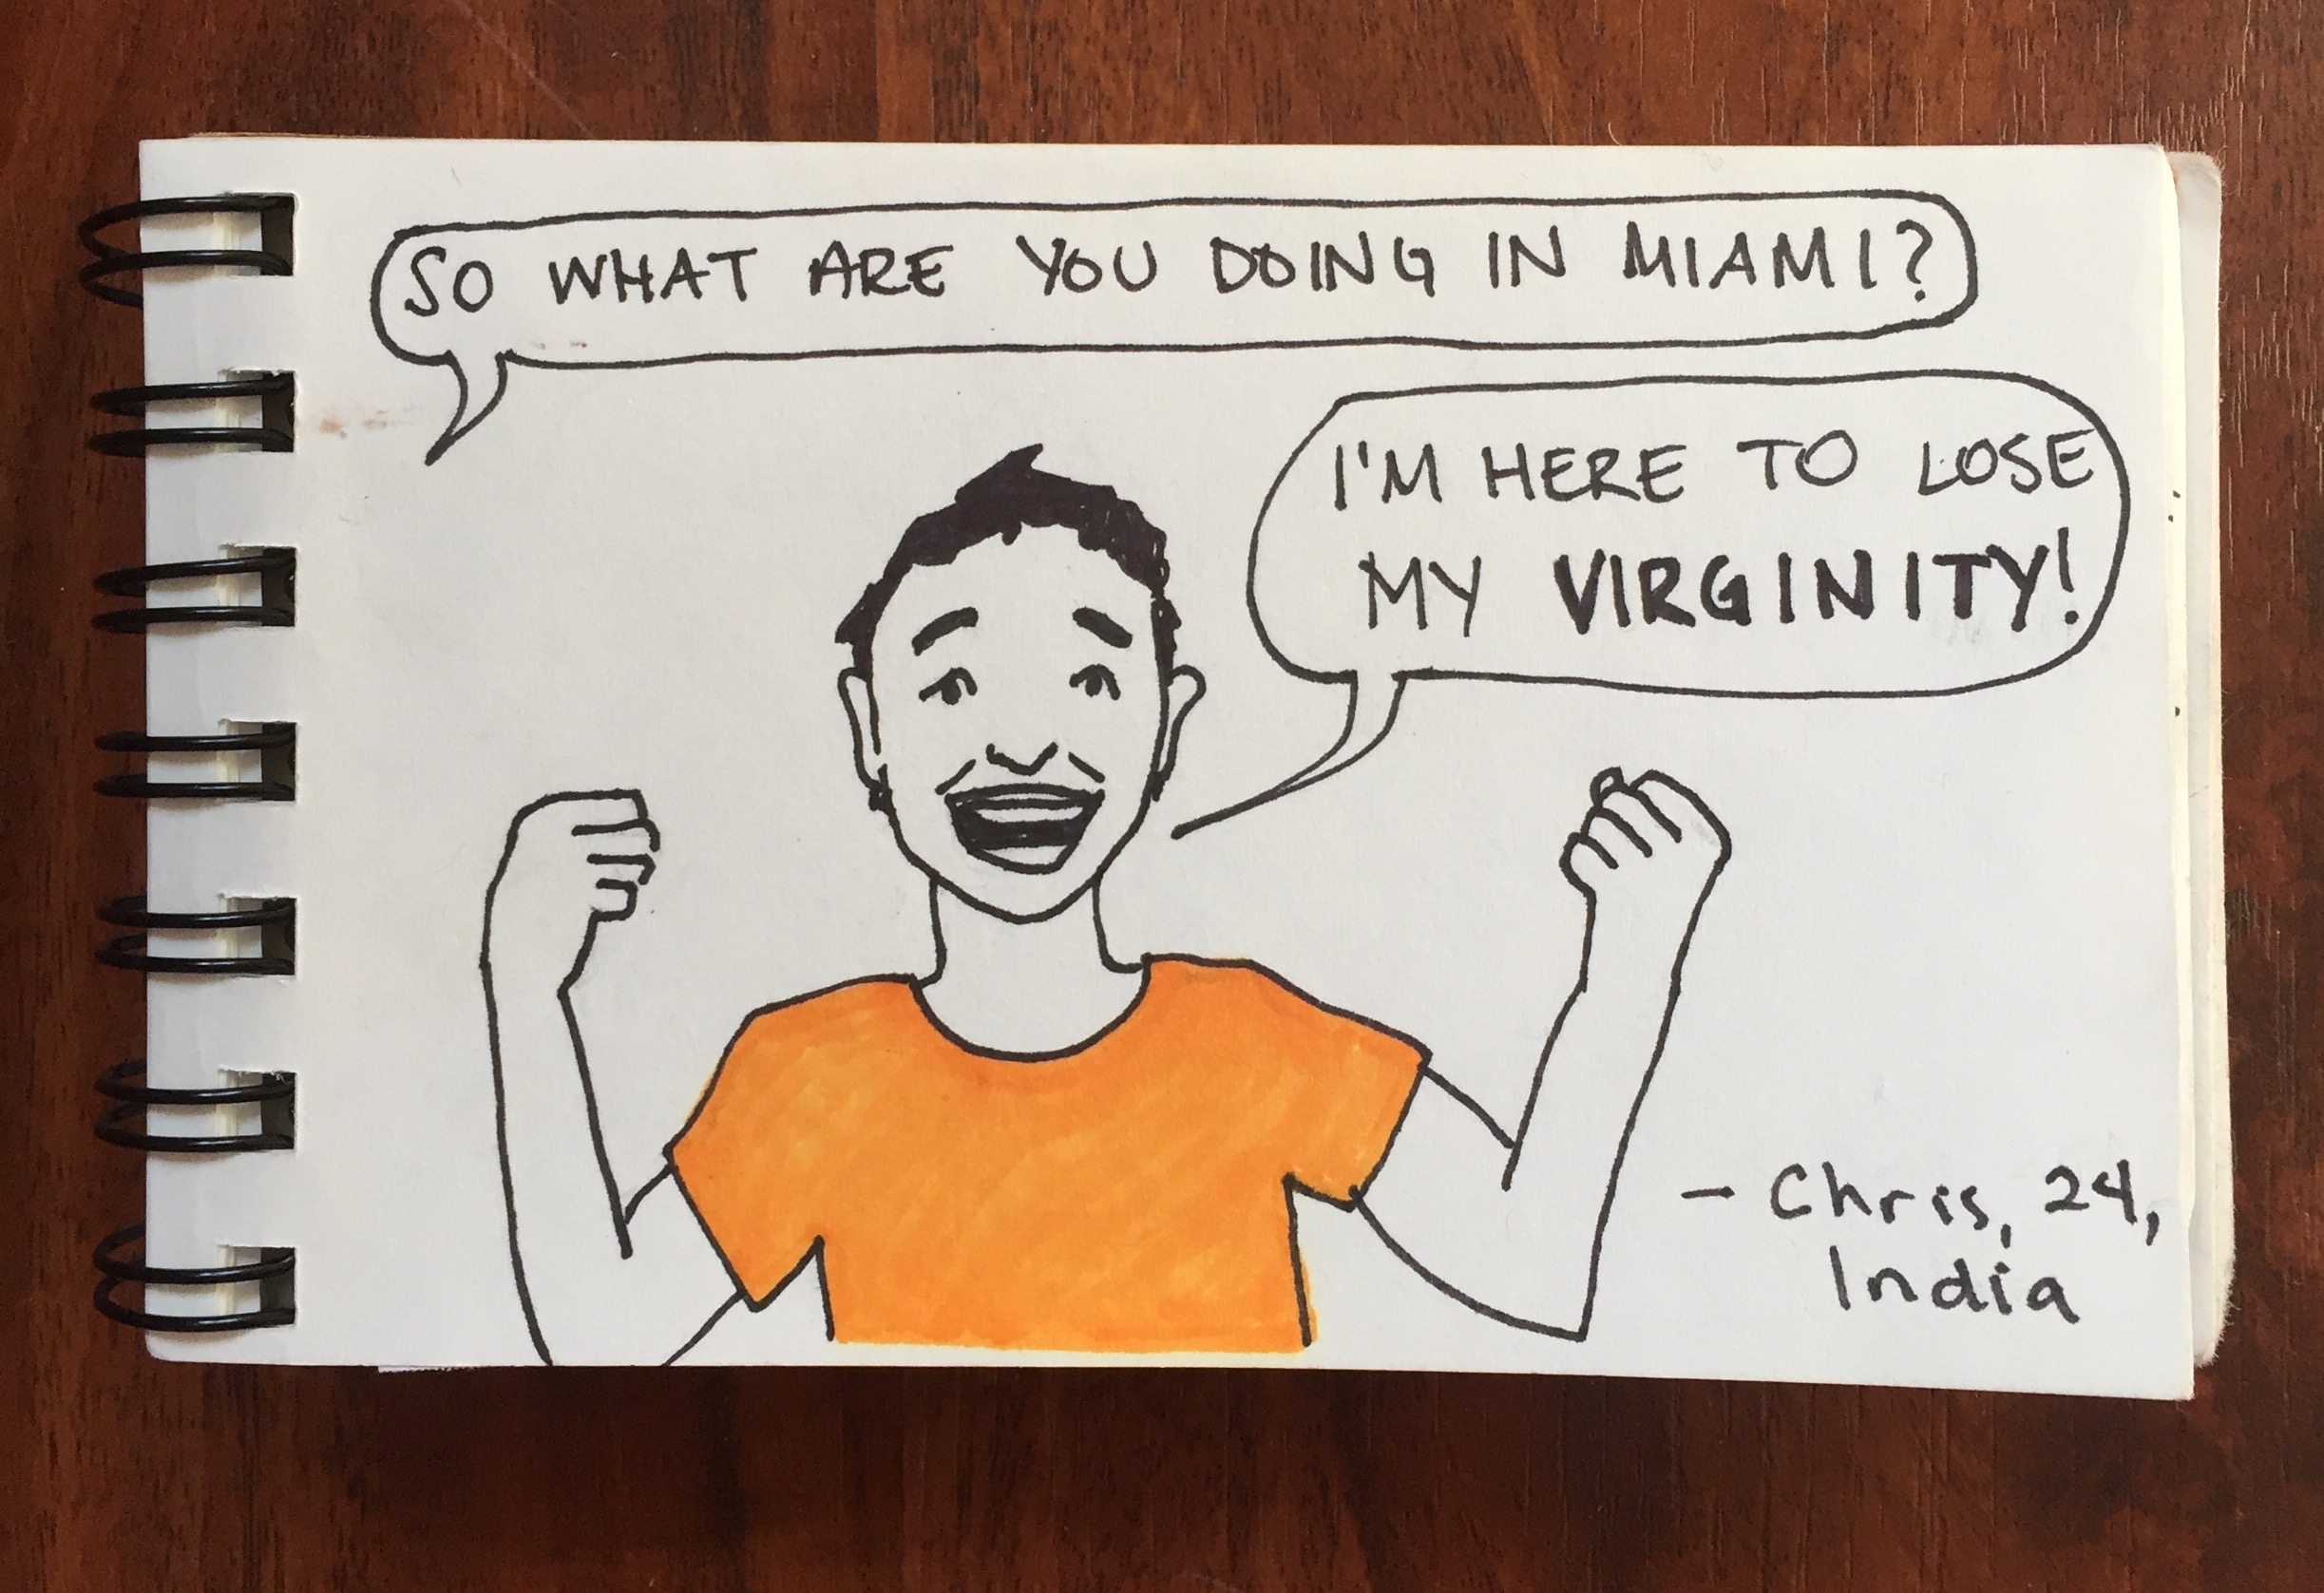 SO WHAT ARE YOU DOING IN MIAMI?
I'M HERE TO LOSE
MY VIRGINITY!
- Chris, 24,
India